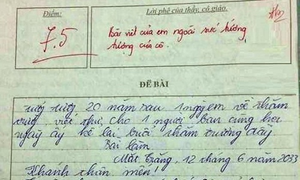 Điểm:
Lời phê của thầy, cô giáo.
7.5
Bài viết của em ngoài sức tưởng
tượng của cô.
ĐỀ BÀI
20 năm sau 1 ngày em về thăm
trường, viết thư cho 1 người bạn cùng học
ngày ấy kể lại buổi thăm trường đầy
Bài làm
Mặt Trăng, 12 tháng 6 năm 2033
Khanh thân mến!